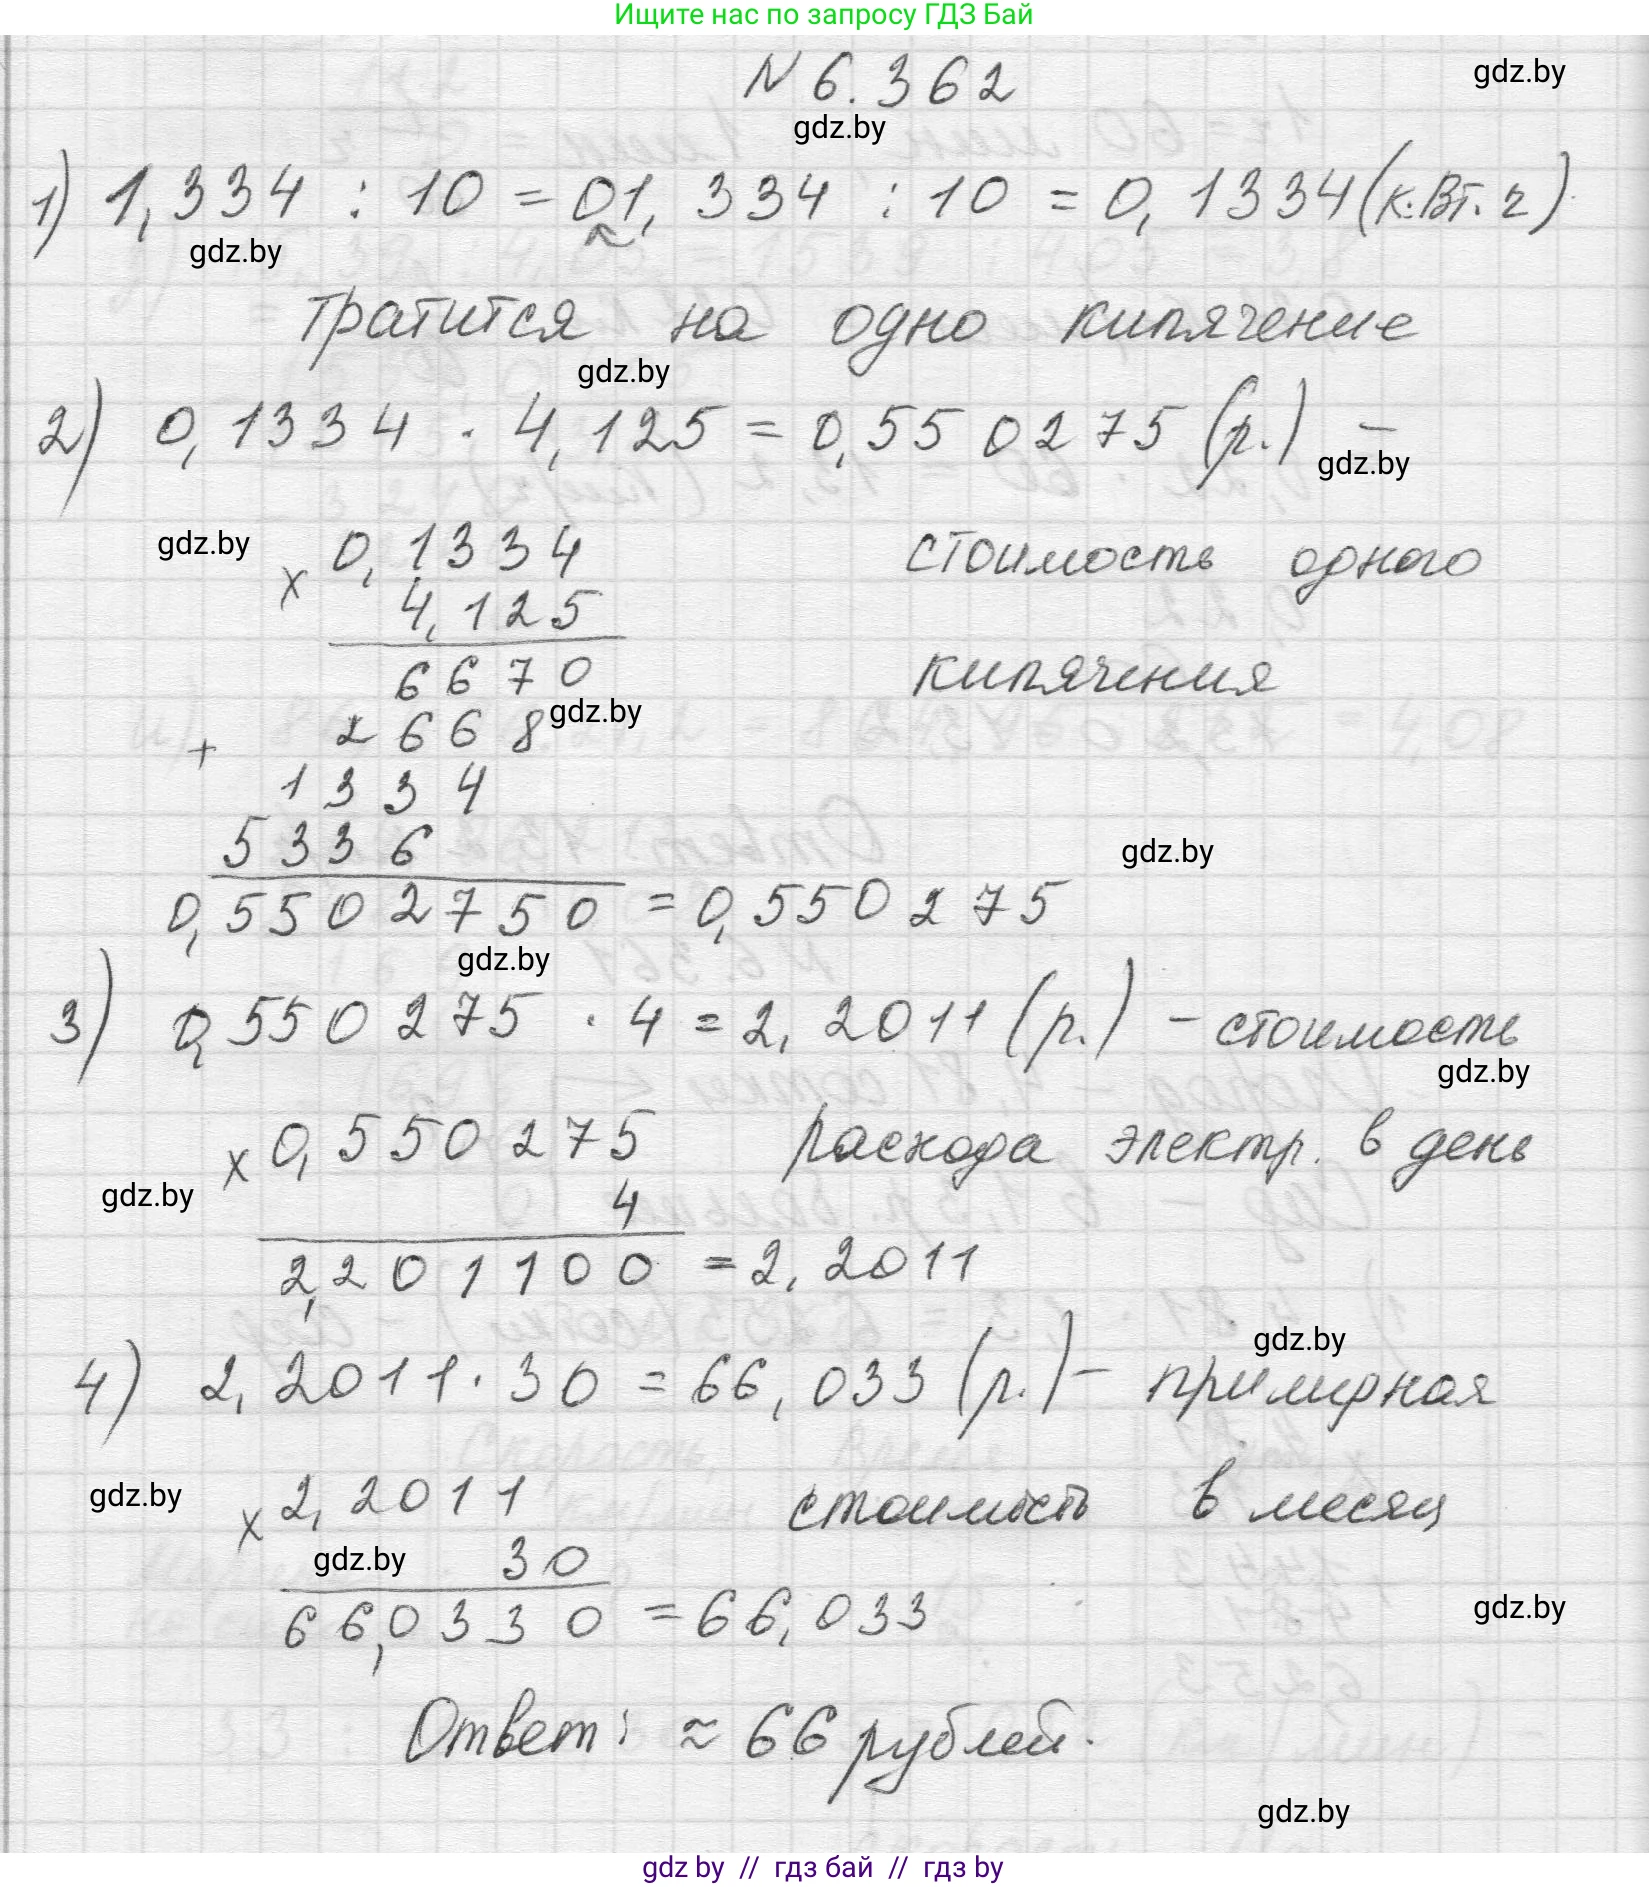 Ищите нас по запросу ГДЗ Бай
N 6.362
gdz.by
gdz.by
1) 1,334 : 10 = 01,334 : 10 = 0,1334 (к.Вт.ч)
gdz.by
тратится на одно кипячение
gdz.by
2) 0,1334 · 4,125 = 0,550275 (р.) –
gdz.by
gdz.by
× 0,1334 стоимость одного
4,125
6670 кипячения
gdz.by
+ 2668
1334
5336
gdz.by
0,5502750 = 0,550275
gdz.by
3) 0,550275 · 4 = 2,2011 (р.) – стоимость
gdz.by
× 0,550275 расхода электр. в день
gdz.by
4
2,201100 = 2,2011
gdz.by
4) 2,2011 · 30 = 66,033 (р.) – примирная
gdz.by
× 2,2011 стоимость в месяц
gdz.by
30
gdz.by
66,0330 = 66,033
Ответ: ≈ 66 рублей.
gdz.by
gdz by // гдз бай // гдз by